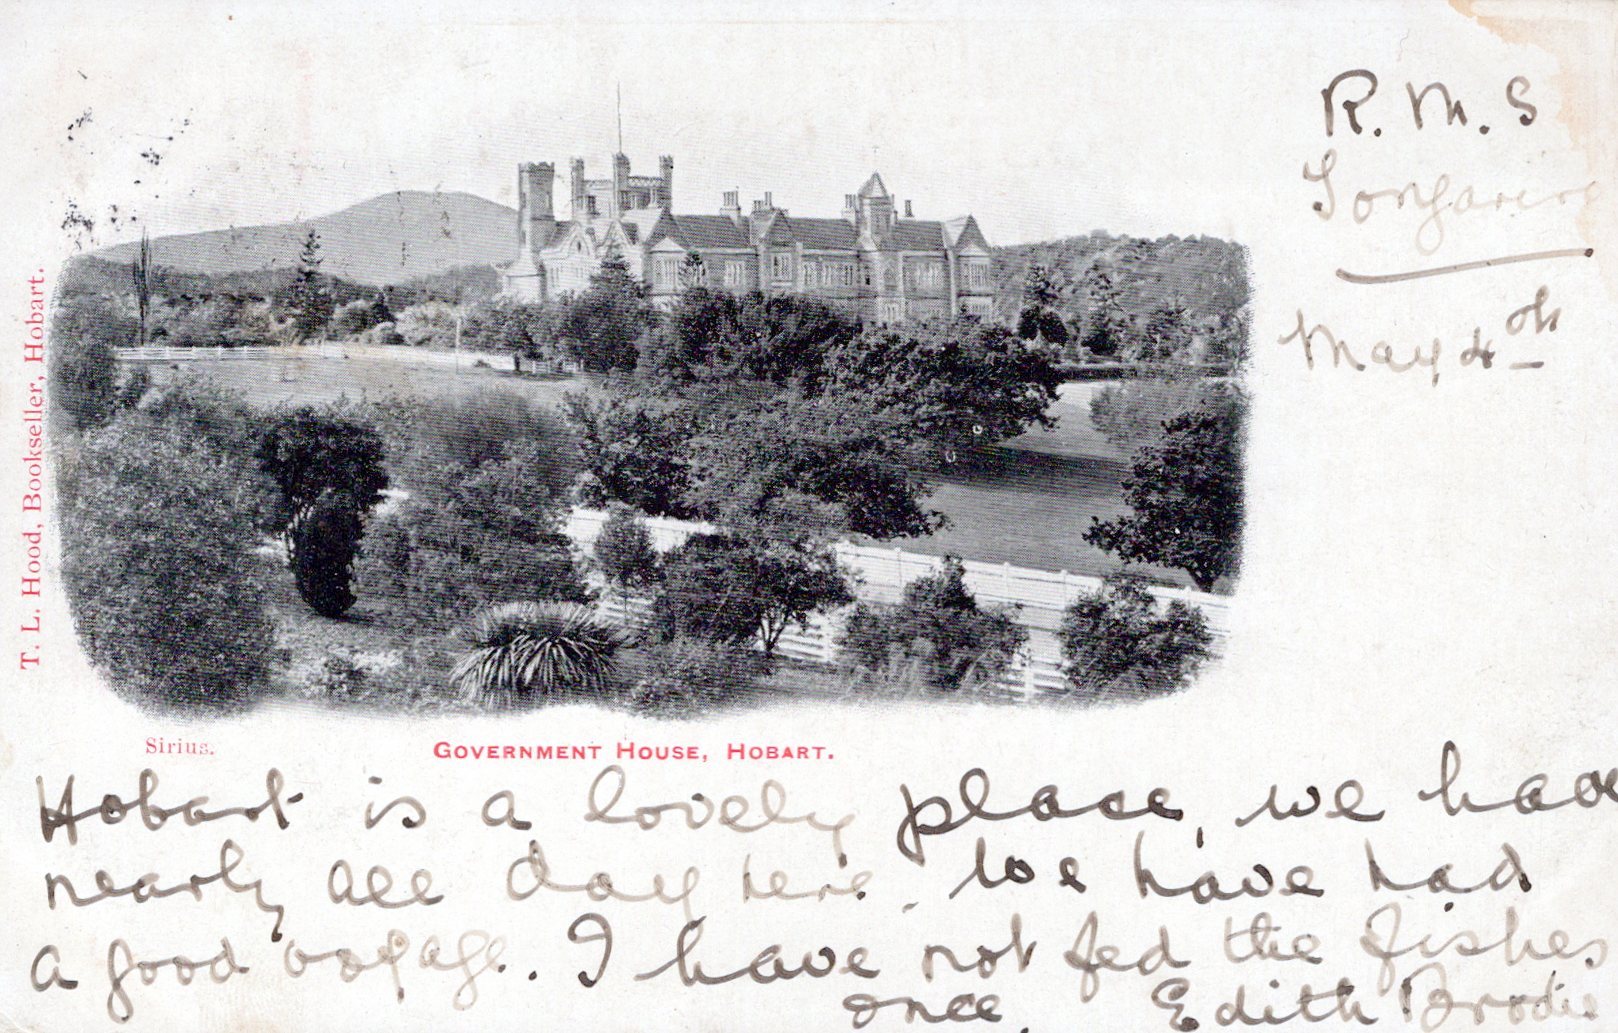 R. M. S
Tongariro
May 4th
T. L. Hood, Bookseller, Hobart.
Sirius.
GOVERNMENT HOUSE, HOBART.
Hobart is a lovely place, we have
nearly all day here. We have had
a good voyage. I have not fed the fishes
once. Edith Brodie